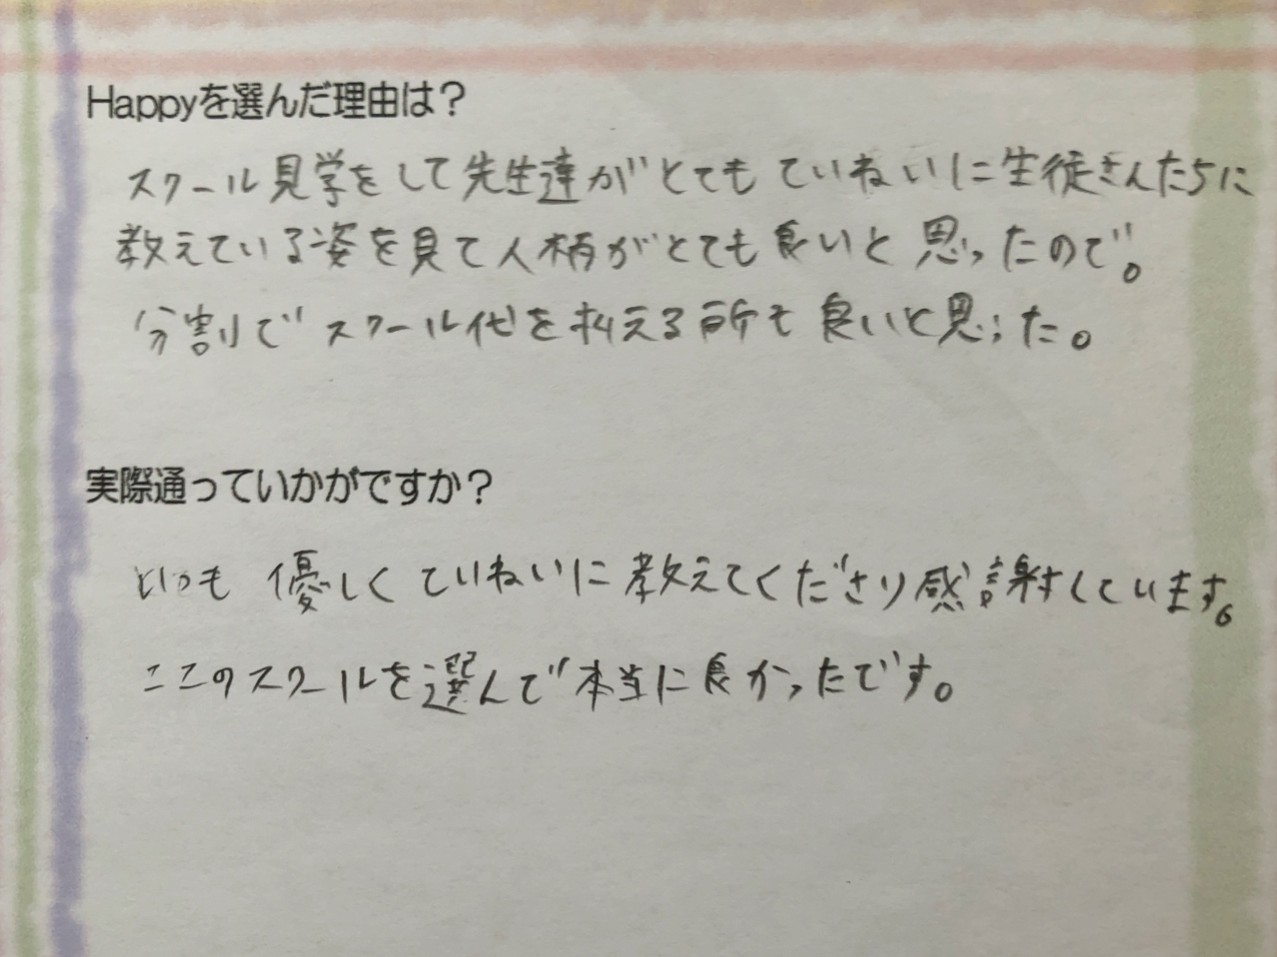 Happyを選んだ理由は？
スクール見学をして先生達がとてもていねいに生徒さんたちに
教えている姿を見て人柄がとても良いと思ったので。
分割でスクール代を払える所も良いと思った。
実際通っていかがですか？
いつも優しくていねいに教えてくださり感謝しています。
ここのスクールを選んで本当に良かったです。